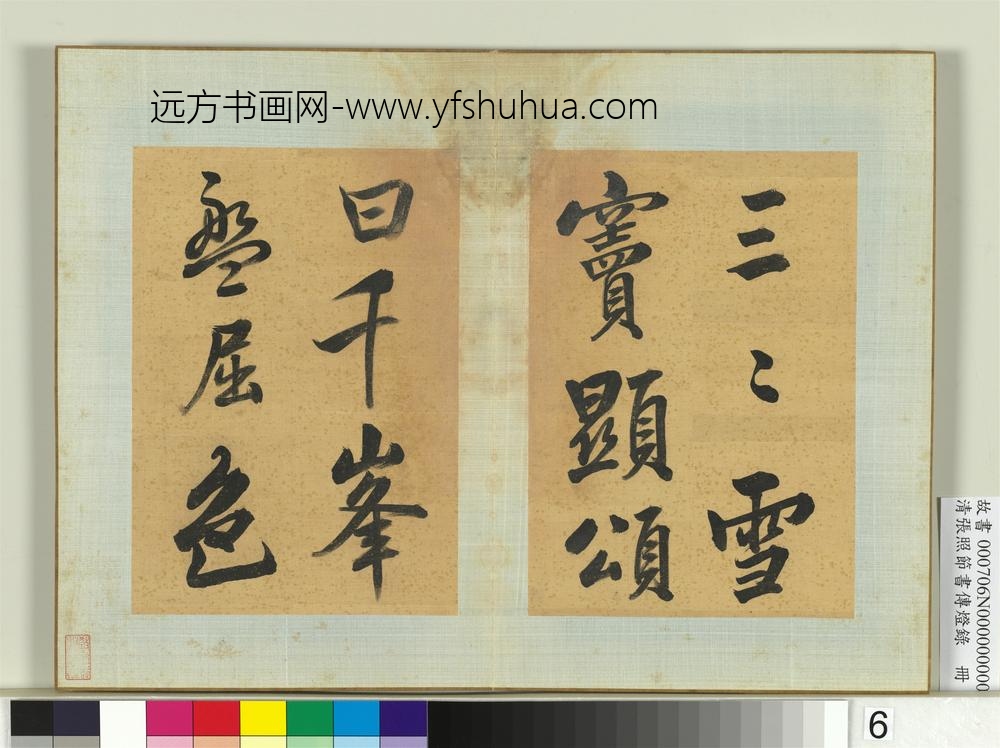 远方书画网-www.yfshuhua.com
三三〻雪
竇顯頌
曰千峯
盤屈色
故書 000706N000000000
清張照節書傳燈錄 冊
6